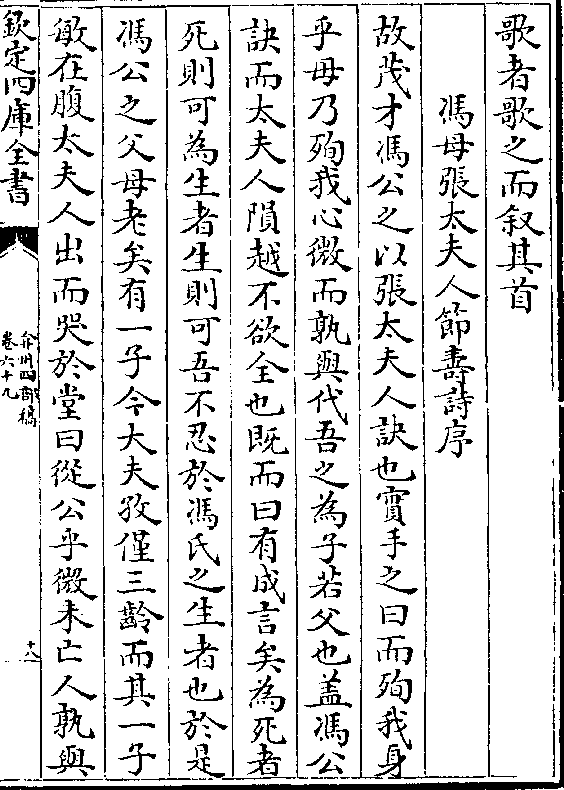 歌者歌之而叙其首
馮母張太夫人節壽詩序
故茂才馮公之以張太夫人訣也實手之曰而殉我身
乎毋乃殉我心微而孰與代吾之為子若父也盖馮公
訣而太夫人隕越不欲全也既而曰有成言矣為死者
死則可為生者生則可吾不忍於馮氏之生者也於是
馮公之父母老矣有一子今大夫孜僅三齡而其一子
敏在腹太夫人出而哭於堂曰從公乎微未亡人孰與
欽定四庫全書
弇州四部稿
卷六十九
十八